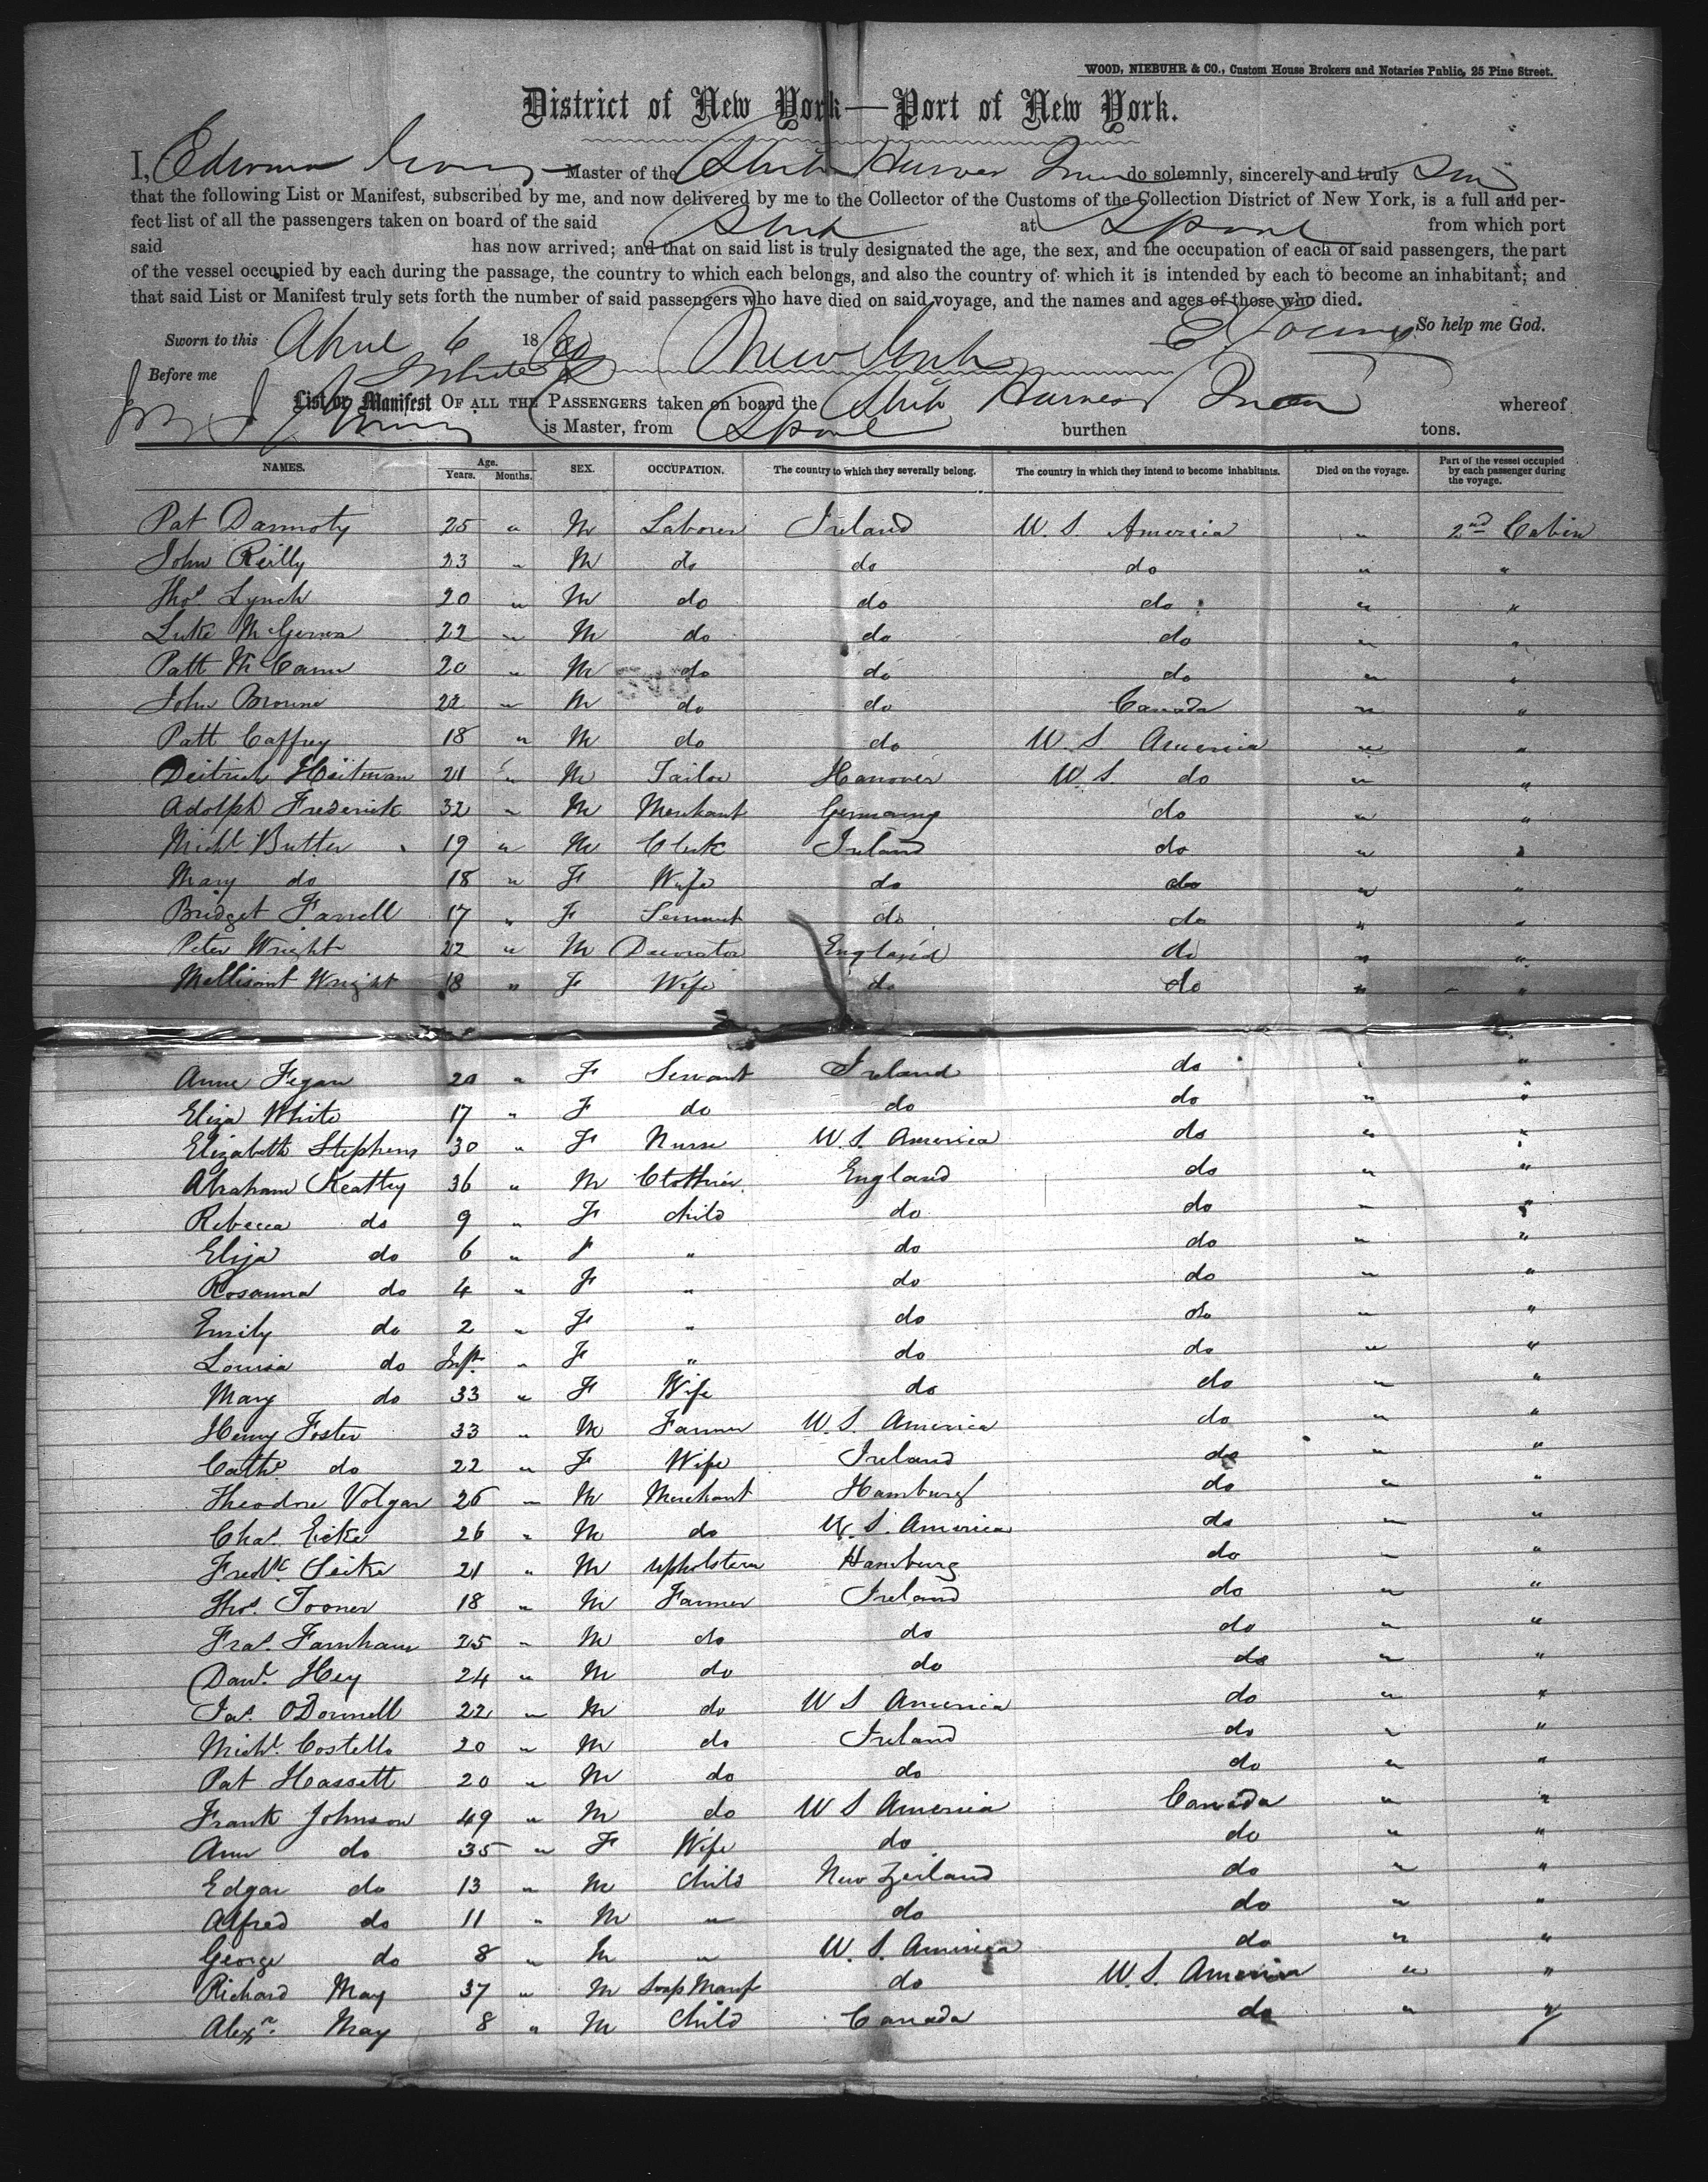 WOOD, NIEBUHR & CO., Custom House Brokers and Notaries Public, 25 Pine Street.
District of New York—Port of New York.
I, Edward Young Master of the Ship Harvest Queen do solemnly, sincerely and truly
that the following List or Manifest, subscribed by me, and now delivered by me to the Collector of the Customs of the Collection District of New York, is a full and per-
fect list of all the passengers taken on board of the said Ship at Lpool from which port
said has now arrived; and that on said list is truly designated the age, the sex, and the occupation of each of said passengers, the part
of the vessel occupied by each during the passage, the country to which each belongs, and also the country of which it is intended by each to become an inhabitant; and
that said List or Manifest truly sets forth the number of said passengers who have died on said voyage, and the names and ages of those who died.
So help me God.
Sworn to this April 6 1860 New York E Young
Before me
List or Manifest OF ALL THE PASSENGERS taken on board the Ship Harvest Queen whereof
is Master, from Lpool burthen tons.
NAMES. Age. Years. Months. SEX. OCCUPATION. The country to which they severally belong. The country in which they intend to become inhabitants. Died on the voyage. Part of the vessel occupied by each passenger during the voyage.
Pat Darmoty 25 " M Laborer Ireland U. S. America " 2nd Cabin
John Reilly 23 " M do do do " "
Thos. Lynch 20 " M do do do " "
Luke McGerron 22 " M do do do " "
Patt McCann 20 " M do do do " "
John Browne 22 " M do do Canada " "
Patt Caffrey 18 " M do do U S America " "
Deitrich Heitman 21 " M Tailor Hanover U. S. do " "
Adolph Frederick 32 " M Merchant Germany do " "
Michl Butler 19 " M Clerk Ireland do " "
Mary do 18 " F Wife do do " "
Bridget Farrell 17 " F Servant do do " "
Peter Wright 22 " M Decorator England do " "
Mellisont Wright 18 " F Wife do do " "
Anne Fegan 20 " F Servant Ireland do " "
Eliza White 17 " F do do do " "
Elizabeth Stephens 30 " F Nurse U. S. America do " "
Abraham Keattey 36 " M Clothier England do " "
Rebecca do 9 " F child do do " "
Eliza do 6 " F " do do " "
Rosanna do 4 " F " do do " "
Emily do 2 " F " do do " "
Louisa do Inft. " F " do do " "
Mary do 33 " F Wife do do " "
Henry Foster 33 " M Farmer U. S. America do " "
Cathe do 22 " F Wife Ireland do " "
Theodore Volgar 26 " M Merchant Hamburg do " "
Chas. Eicke 26 " M do U. S. America do " "
Fredk. Seike 21 " M Upholsterer Hamburg do " "
Thos. Tooner 18 " M Farmer Ireland do " "
Fras. Farnham 25 " M do do do " "
Danl. Hey 24 " M do do do " "
Jas. O'Donnell 22 " M do U S America do " "
Michl. Costello 20 " M do Ireland do " "
Pat Hassett 20 " M do do do " "
Frank Johnson 49 " M do U S America Canada " "
Ann do 35 " F Wife do do " "
Edgar do 13 " M Child New Zeiland do " "
Alfred do 11 " M " do do " "
George do 8 " M " U. S. America do " "
Richard May 37 " M Soap Manf do U. S. America " "
Alexr. May 8 " M Child Canada do " "